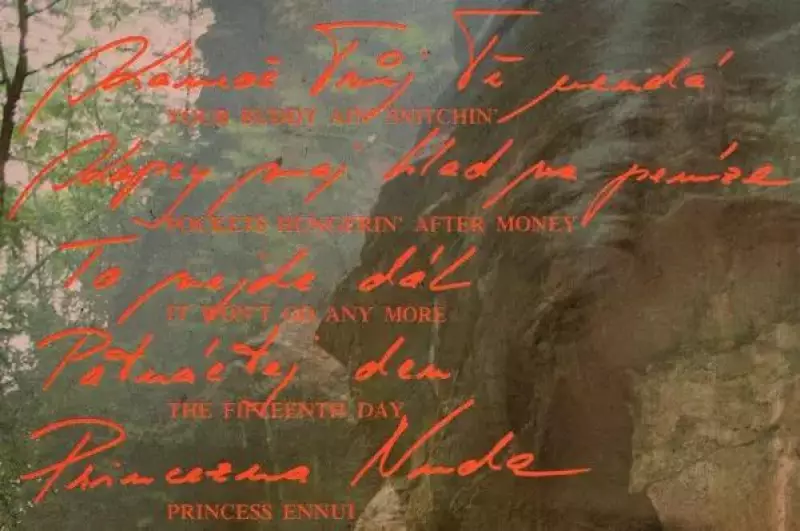 Kámoš Tvůj Tě nendá
YOUR BUDDY AIN' SNITCHIN'
Kapsy maj' hlad na peníze
POCKETS HUNGERIN' AFTER MONEY
To nejde dál
IT WON'T GO ANY MORE
Patnáctej den
THE FIFTEENTH DAY
Princezna Nuda
PRINCESS ENNUI